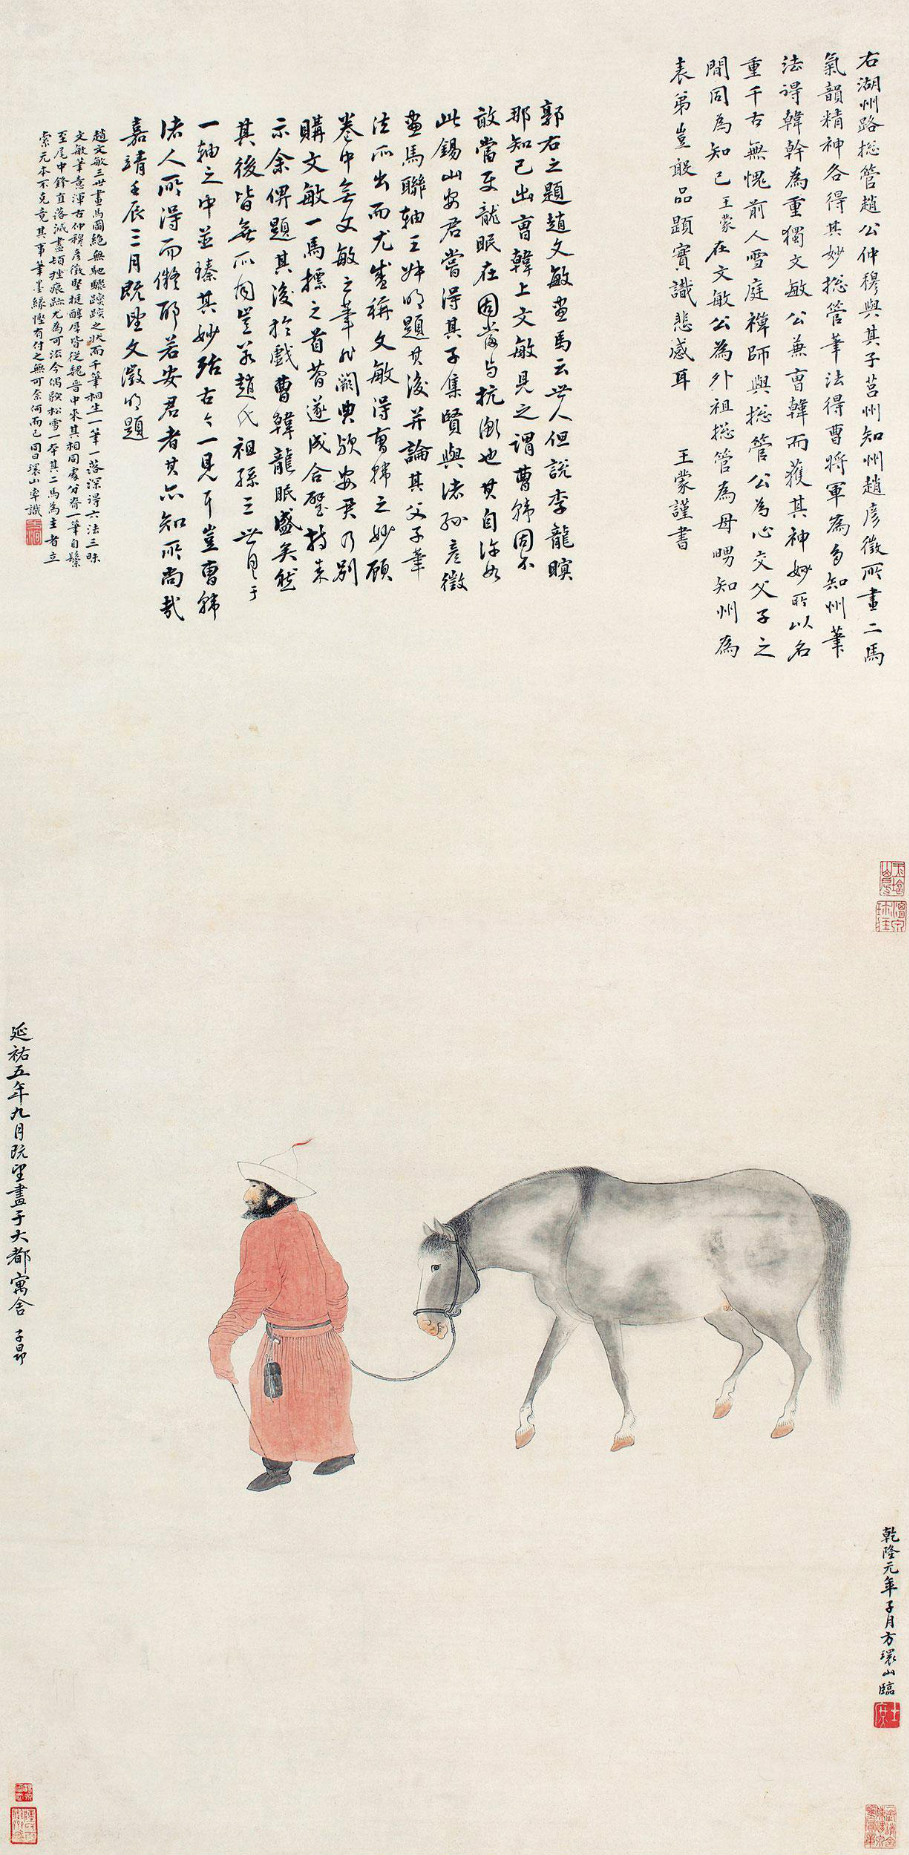 右湖州路総管趙公仲穆與其子莒州知州趙彥徵所畫二馬
氣韻精神各得其妙総管筆法得曹將軍為多知州筆
法得韓幹為重獨文敏公兼曹韓而獲其神妙所以名
重千古無愧前人雪庭禪師與総管公為心交父子之
間同為知己王蒙在文敏公為外祖総管為母舅知州為
表弟豈敢品題實識悲感耳 王蒙謹書
郭右之題趙文敏畫馬云世人但說李龍瞑
那知已出曹韓上文敏見之謂曹韓固不
敢當更龍眠在固當与抗衡也其自許如
此錫山安君嘗得其子集賢與諸孫彥徵
畫馬聯軸王叔明題其後并論其父子筆
法所出而尤盛稱文敏得曹韓之妙顧
卷中無文敏之筆為闕典歟安君乃別
購文敏一馬標之首簡遂成合璧持來
示余俾題其後於戲曹韓龍眠盛矣然
其後皆無所聞豈若趙氏祖孫三世見于
一軸之中並臻其妙殆古今一見耳豈曹韓
諸人所得而儗耶若安君者其亦知所尚哉
嘉靖壬辰三月既望文徵明題
趙文敏三世畫馬圖絕無馳驟踶踘之狀而千筆相生一筆一落深得六法三昧
文敏筆意渾古仲穆彥徵堅挺醇厚皆從魏晉中來其相同處分脊一筆自鬃
至尾中鋒直落滅盡頓挫痕跡尤為可法今偶歐松雪一本其二馬為主者立
索元本不克竟其事筆墨緣慳有付之無可奈何而已同日環山幸識
延祐五年九月既望畫于大都寓舍 子昂
乾隆元年子月方環山臨